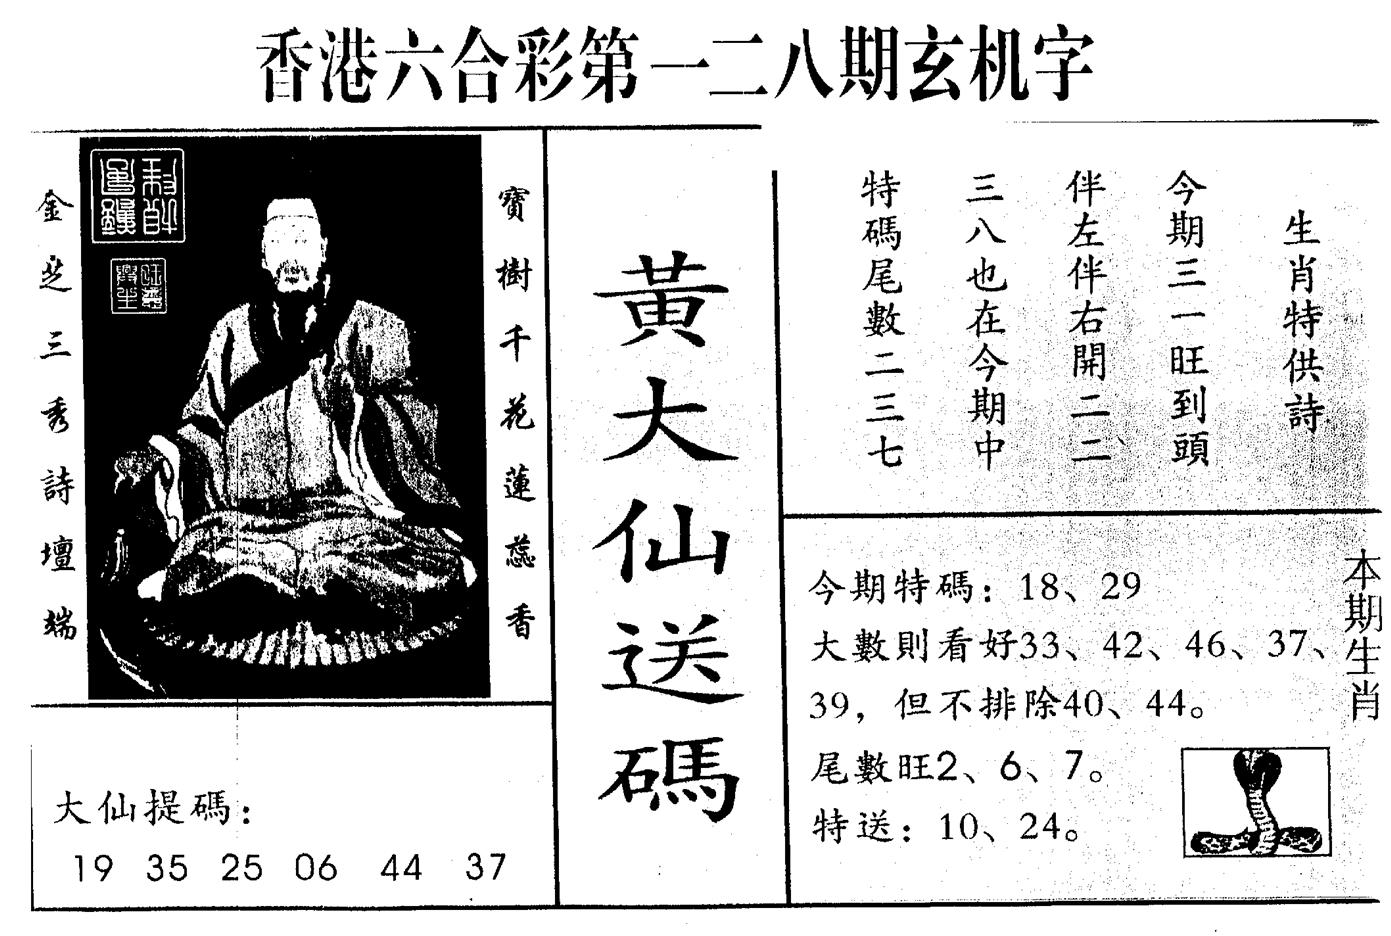 香港六合彩第一二八期玄机字
生肖特供詩
今期三一旺到頭
伴左伴右開二二
三八也在今期中
特碼尾數二三七
黃大仙送碼
寶樹千花蓮蕊香
金芝三秀詩壇端
大仙提碼:
19 35 25 06 44 37
今期特碼: 18、29
大數則看好33、42、46、37、
39, 但不排除40、44。
尾數旺2、6、7。
特送: 10、24。
本期生肖